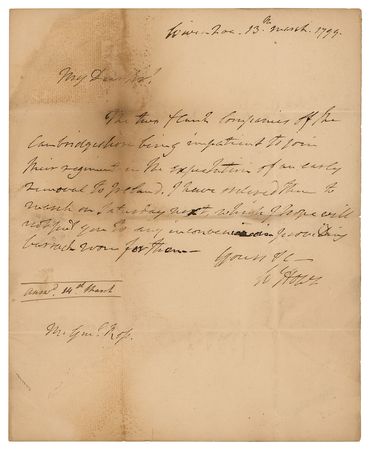 13.th march. 1799.
My Dear Sir!
The two flank Companies of the
Cambridgeshire being impatient to join
their regiment in the expectation of an early
removal to Ireland, I have ordered them to
march on Saturday next, which I hope will
not put you to any inconvenience in providing
barrack room for them—
Yours &c
W Howe
answd. 14th March
M. Genl. Ross.